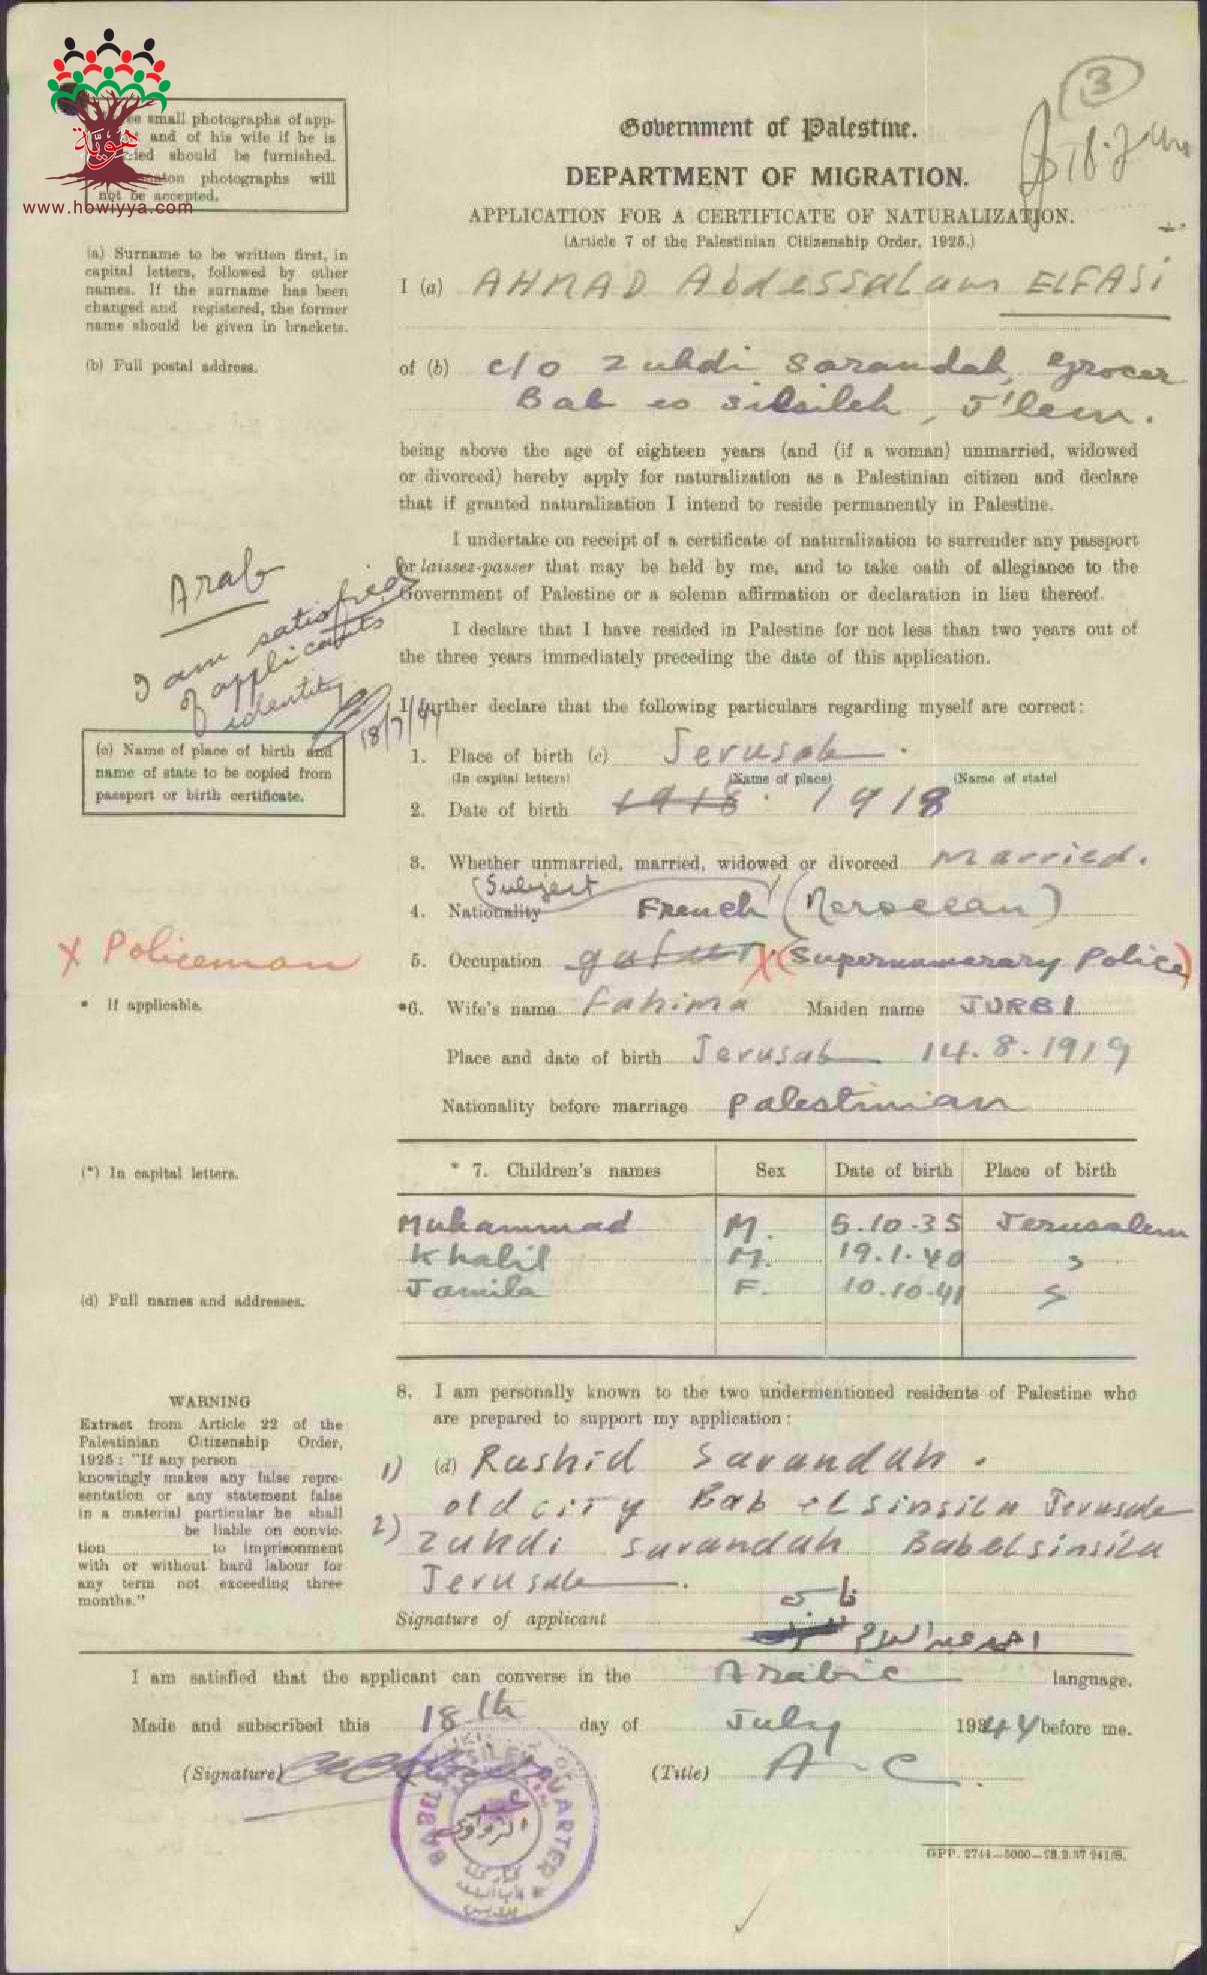 3
18. June
Three small photographs of app-
and of his wife if he is
married should be furnished.
photographs will
not be accepted.
هوية
www.howiyya.com
Government of Palestine.
DEPARTMENT OF MIGRATION.
APPLICATION FOR A CERTIFICATE OF NATURALIZATION.
(Article 7 of the Palestinian Citizenship Order, 1925.)
(a) Surname to be written first, in
capital letters, followed by other
names. If the surname has been
changed and registered, the former
name should be given in brackets.
I (a) AHMAD Abdessalam ELFASI
(b) Full postal address.
of (b) c/o Zuhdi Sarandah, grocer
Bab es silsileh, J'lem.
being above the age of eighteen years (and (if a woman) unmarried, widowed
or divorced) hereby apply for naturalization as a Palestinian citizen and declare
that if granted naturalization I intend to reside permanently in Palestine.
I undertake on receipt of a certificate of naturalization to surrender any passport
or laissez-passer that may be held by me, and to take oath of allegiance to the
Government of Palestine or a solemn affirmation or declaration in lieu thereof.
I declare that I have resided in Palestine for not less than two years out of
the three years immediately preceding the date of this application.
Arab
I am satisfied
of applicants
identity
18/7/44
I further declare that the following particulars regarding myself are correct:
(c) Name of place of birth and
name of state to be copied from
passport or birth certificate.
1. Place of birth (c) Jerusale .
(In capital letters) (Name of place) (Name of state)
2. Date of birth 1918 . 1918
3. Whether unmarried, married, widowed or divorced married.
(Subject
4. Nationality French (Moroccan)
X Policeman
5. Occupation X (Supernumerary Police)
* If applicable.
*6. Wife's name Fahima Maiden name JURBI
Place and date of birth Jerusale 14.8.1919
Nationality before marriage Palestinian
(*) In capital letters.
* 7. Children's names Sex Date of birth Place of birth
Muhammad M. 5.10.35 Jerusalem
Khalil M. 19.1.40 "
Jamila F. 10.10.41 "
(d) Full names and addresses.
8. I am personally known to the two undermentioned residents of Palestine who
are prepared to support my application:
1) (d) Rashid Sarandah .
old city Bab el sinsila Jerusale
2) Zuhdi Sarandah Babelsinsila
Jerusale .
WARNING
Extract from Article 22 of the
Palestinian Citizenship Order,
1925: "If any person
knowingly makes any false repre-
sentation or any statement false
in a material particular be shall
be liable on convic-
tion to imprisonment
with or without hard labour for
any term not exceeding three
months."
Signature of applicant
فاسي
احمد عبد السلام
I am satisfied that the applicant can converse in the Arabic language.
Made and subscribed this 18th day of July 1944 before me.
(Signature) (Title) A. C.
QUARTER
GPP. 2744—5000—23.2.37 241/S.